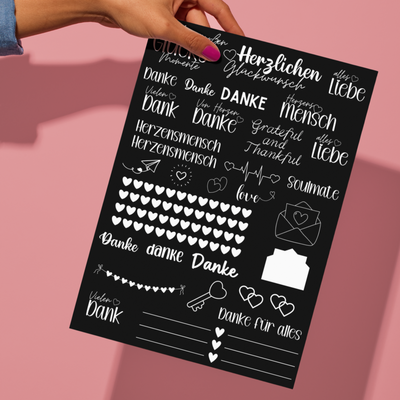 Glücks
Momente
Herzlichen
Glückwunsch
alles
Liebe
Danke
Danke
DANKE
Herzens
mensch
Vielen
Dank
Von Herzen
Danke
Grateful
and
Thankful
alles
Liebe
Herzensmensch
Herzensmensch
love
Soulmate
Danke danke Danke
Vielen
Dank
Danke für alles